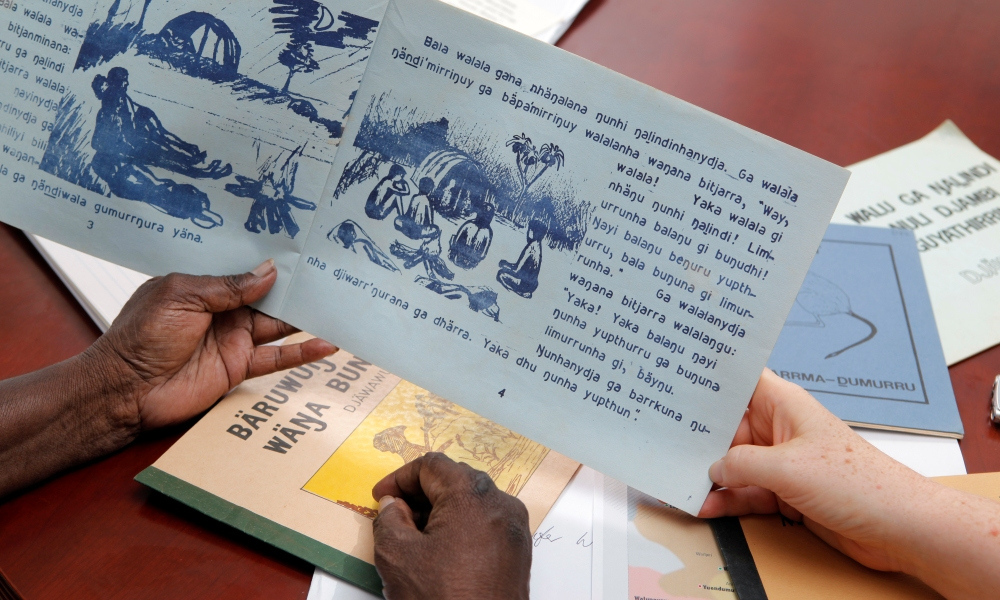 bala walala wa-
bitjanminana:
ŋurru ga ŋaḻindi
bitjarra walala:
nayinydja
ga ṉäṉḏiwala gumurrŋura yäna.
3
Bala walala gana nhäŋalana ŋunhi ŋaḻindinhanydja. Ga walaḻa
ŋäṉḏi'mirriŋuy ga bäpamirriŋuy walalanha waŋana bitjarra, "Way,
walala! Yaka walala gi
nhäŋu ŋunhi ŋaḻindi! Lim-
urrunha balaŋu gi buŋudhi!
Ŋayi balaŋu beŋuru yupth-
urru, bala buŋuna gi limur-
runha."
Ga walalanydja
waŋana bitjarra walalaŋgu:
"Yaka! Yaka balaŋu ŋayi
ŋunha yupthurru ga buŋuna
limurrunha gi, bäyŋu.
Ŋunhanydja ga barrkuna ŋu-
nha djiwarr'ŋurana ga dhärra. Yaka dhu ŋunha yupthun".
4
BÄRUWUŊ
WÄŊA BUN
DJÄWAW
WALU GA ŊAḺINDI
DJAMBA
GUYATHIRR
ARRMA-ḎUMURRU
Yuendumu